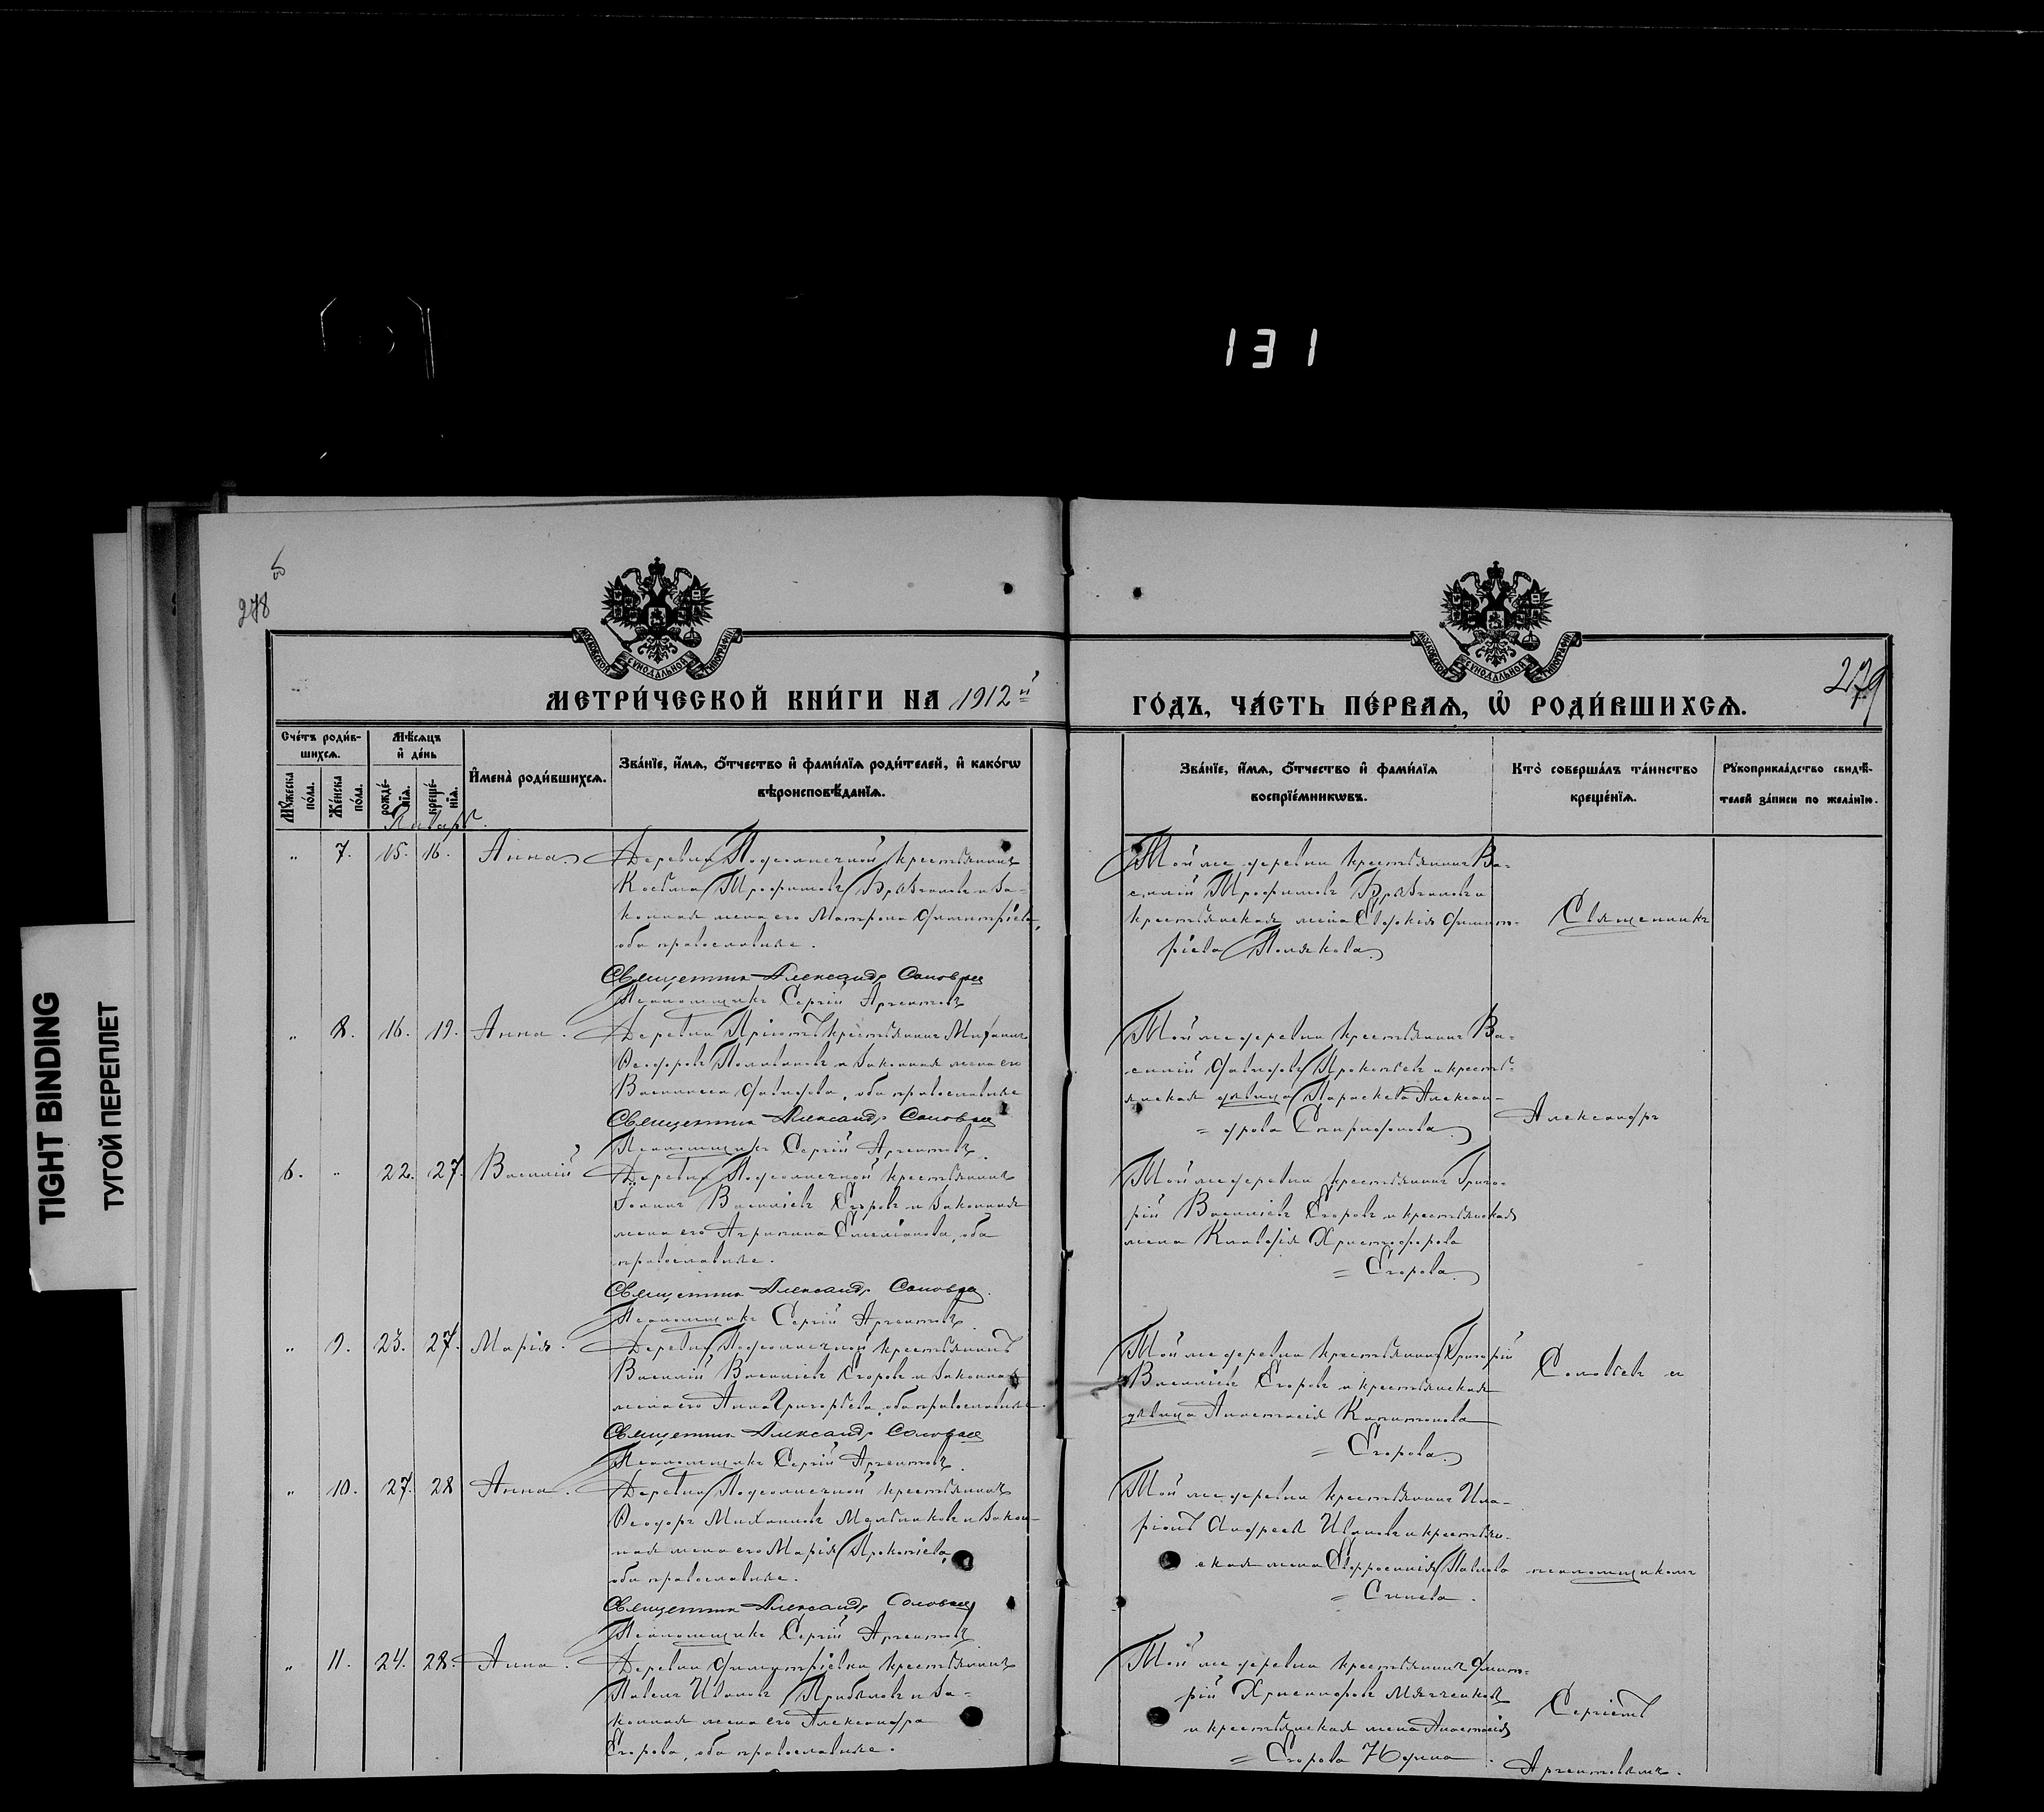 131
TIGHT BINDING
ТУГОЙ ПЕРЕПЛЕТ
278
279
МОСКОВСКОЙ СѴНОДАЛЬНОЙ ТИПОГРАФІИ
МОСКОВСКОЙ СѴНОДАЛЬНОЙ ТИПОГРАФІИ
МЕТРИ́ЧЕСКОЙ КНИ́ГИ НА 1912й
ГО́ДЪ, ЧА́СТЬ ПЕ́РВАѦ, Ѡ҆ РОДИ́ВШИХСѦ.
Сче́тъ роди́в-
шихсѧ.
Мѣ́сяцъ
и҆ де́нь
Мꙋ́жеска
по́ла.
Же́нска
по́ла.
рожде́-
нїѧ.
креще́-
нїѧ.
И҆мена̀ роди́вшихсѧ.
Зва́нїе, и҆́мѧ, ѻ҆́тчество и҆ фами́лїѧ роди́телей, и҆ како́гѡ
вѣроисповѣ́данїѧ.
Зва́нїе, и҆́мѧ, ѻ҆́тчество и҆ фами́лїѧ
воспрїе́мникѡвъ.
Кто̀ соверша́лъ та́инство
креще́нїѧ.
Рꙋкоприкла́дство свидѣ́-
телей за́писи по жела́нїю.
Январь.
" 7. 15. 16. Анна
Деревни Подсолнечной крестьянинъ
Косьма Трофимовъ и за-
конная жена его Матрона Димитріева,
оба православные.
Священникъ Александръ Соловьев
Псаломщикъ Сергій Аргентовъ
Той же деревни крестьянинъ Ва-
силій Трофимовъ и
крестьянская жена Евдокія Димит-
ріева Полякова.
Священникъ
" 8. 16. 19. Анна.
Деревни Пріютъ крестьянинъ Михаилъ
Ѳеодоровъ Поливановъ и законная жена его
Василиса Давидова, оба православные
Священникъ Александръ Соловьев
Псаломщикъ Сергій Аргентовъ.
Той же деревни крестьянинъ Ва-
силій Давидовъ Прокопьевъ и кресть-
янская дѣвица Параскева Алексан-
= дрова Спиридонова.
Александръ
6. " 22. 27. Василій
Деревни Подсолнечной крестьянинъ
Іоаннъ Василіевъ Егоровъ и законная
жена его Агрипина Емеліанова, оба
православные.
Священникъ Александръ Соловьев.
Псаломщикъ Сергій Аргентовъ.
Той же деревни крестьянинъ Григо-
рій Василіевъ Егоровъ и крестьянская
жена Клавдія Христофорова
= Егорова.
" 9. 23. 27. Марія.
Деревни Подсолнечной крестьянинъ
Василій Василіевъ Егоровъ и законная
жена его Анна Григорьева, оба православные.
Священникъ Александръ Соловьев
Псаломщикъ Сергій Аргентовъ.
Той же деревни крестьянинъ Григорій
Василіевъ Егоровъ и крестьянская
дѣвица Анастасія Капитонова
= Егорова.
Соловьевъ и
" 10. 27. 28 Анна.
Деревни Подсолнечной крестьянинъ
Ѳеодоръ Михаиловъ Мельниковъ и закон-
ная жена его Марія Прокопіева,
оба православные.
Священникъ Александръ Соловьев
Псаломщикъ Сергій Аргентовъ
Той же деревни крестьянинъ Ила-
ріонъ Андреевъ Ивановъ и крестьян-
ская жена Евфросинія Павлова
= Сипова.
псаломщикомъ
" 11. 24. 28. Анна.
Деревни Димитріевки крестьянинъ
Павелъ Ивановъ и за-
конная жена его Александра
Егорова, оба православные.
Той же деревни крестьянинъ Димит-
рій Хрисанфовъ
и крестьянская жена Анастасія
= Егорова Юдина.
Сергіемъ
Аргентовымъ.